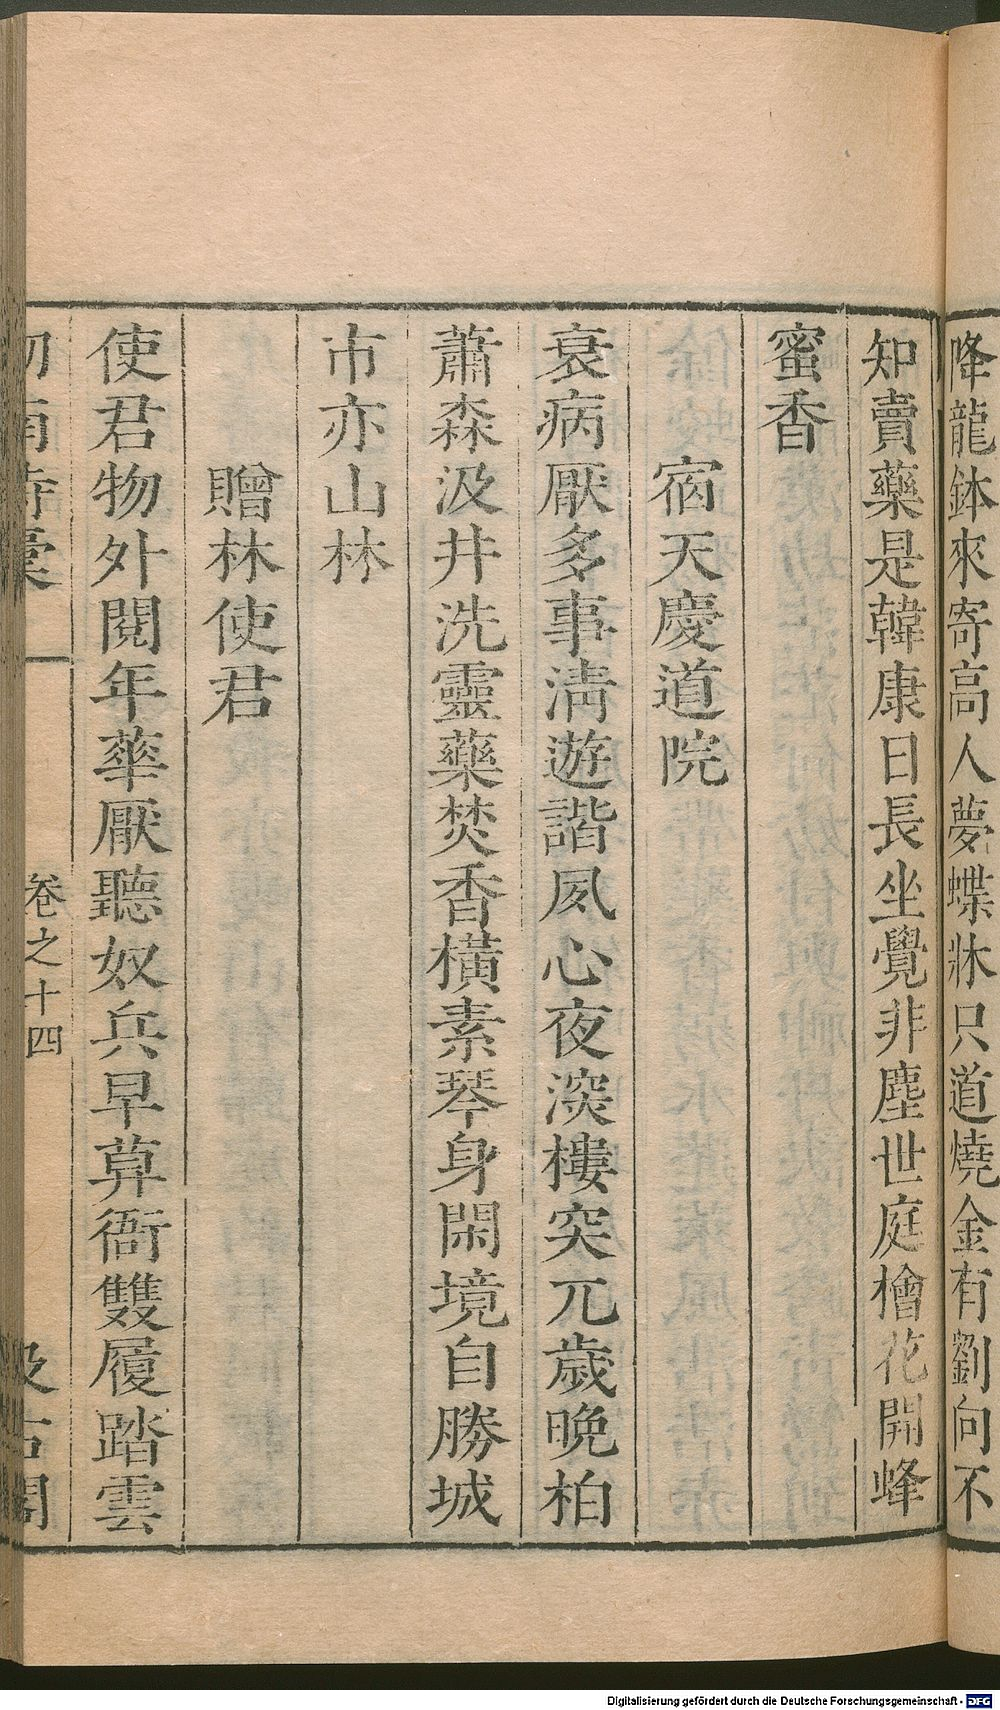 降龍鉢來寄高人夢蝶牀只道燒金有劉向不
知賣藥是韓康日長坐覺非塵世庭檜花開蜂
蜜香
宿天慶道院
衰病厭多事淸遊諧夙心夜深樓突兀歲晚柏
蕭森汲井洗靈藥焚香橫素琴身閑境自勝城
市亦山林
贈林使君
使君物外閱年華厭聽奴兵早算衙雙履踏雲
劍南詩稾
卷之十四
汲古閣
Digitalisierung gefördert durch die Deutsche Forschungsgemeinschaft - DFG